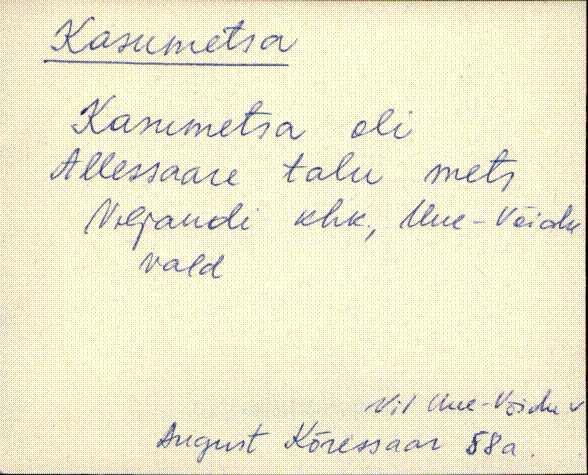 Kasumetsa
Kasumetsa oli
Allessaare talu mets
Viljandi khk, Uue-Võidu
vald
Vil Uue-Võidu v
August Kõressaar 58a.